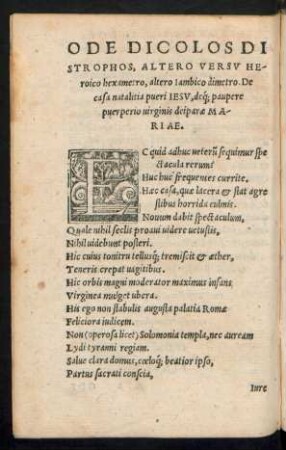 ODE DICOLOS DI
STROPHOS, ALTERO VERSV HE-
roico hexametro, altero Iambico dimetro. De
casa natalitia pueri IESV, deq́; paupere
puerperio uirginis deiparæ MA-
RIAE.
EC quid adhuc ueterũ sequimur spe
ctacula rerum?
Huc huc frequentes currite.
Hæc casa, quæ lacera & stat agre
stibus horrida culmis.
Nouum dabit spectaculum,
Quale nihil seclis proaui uidere uetustis,
Nihil uidebunt posteri.
Hic cuius tonitru tellusq́; tremiscit & æther,
Teneris crepat uagitibus.
Hic orbis magni moderator maximus infans
Virginea mulget ubera.
His ego non stabulis augusta palatia Romæ
Feliciora iudicem.
Non (operosa licet) Solomonia templa, nec auream
Lydi tyranni regiam.
Salue clara domus, cœloq́; beatior ipso,
Partus sacrati conscia,
Iure